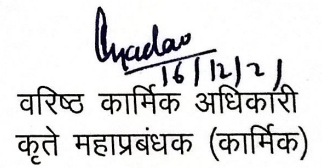 16/12/21
वरिष्ठ कार्मिक अधिकारी
कृते महाप्रबंधक (कार्मिक)